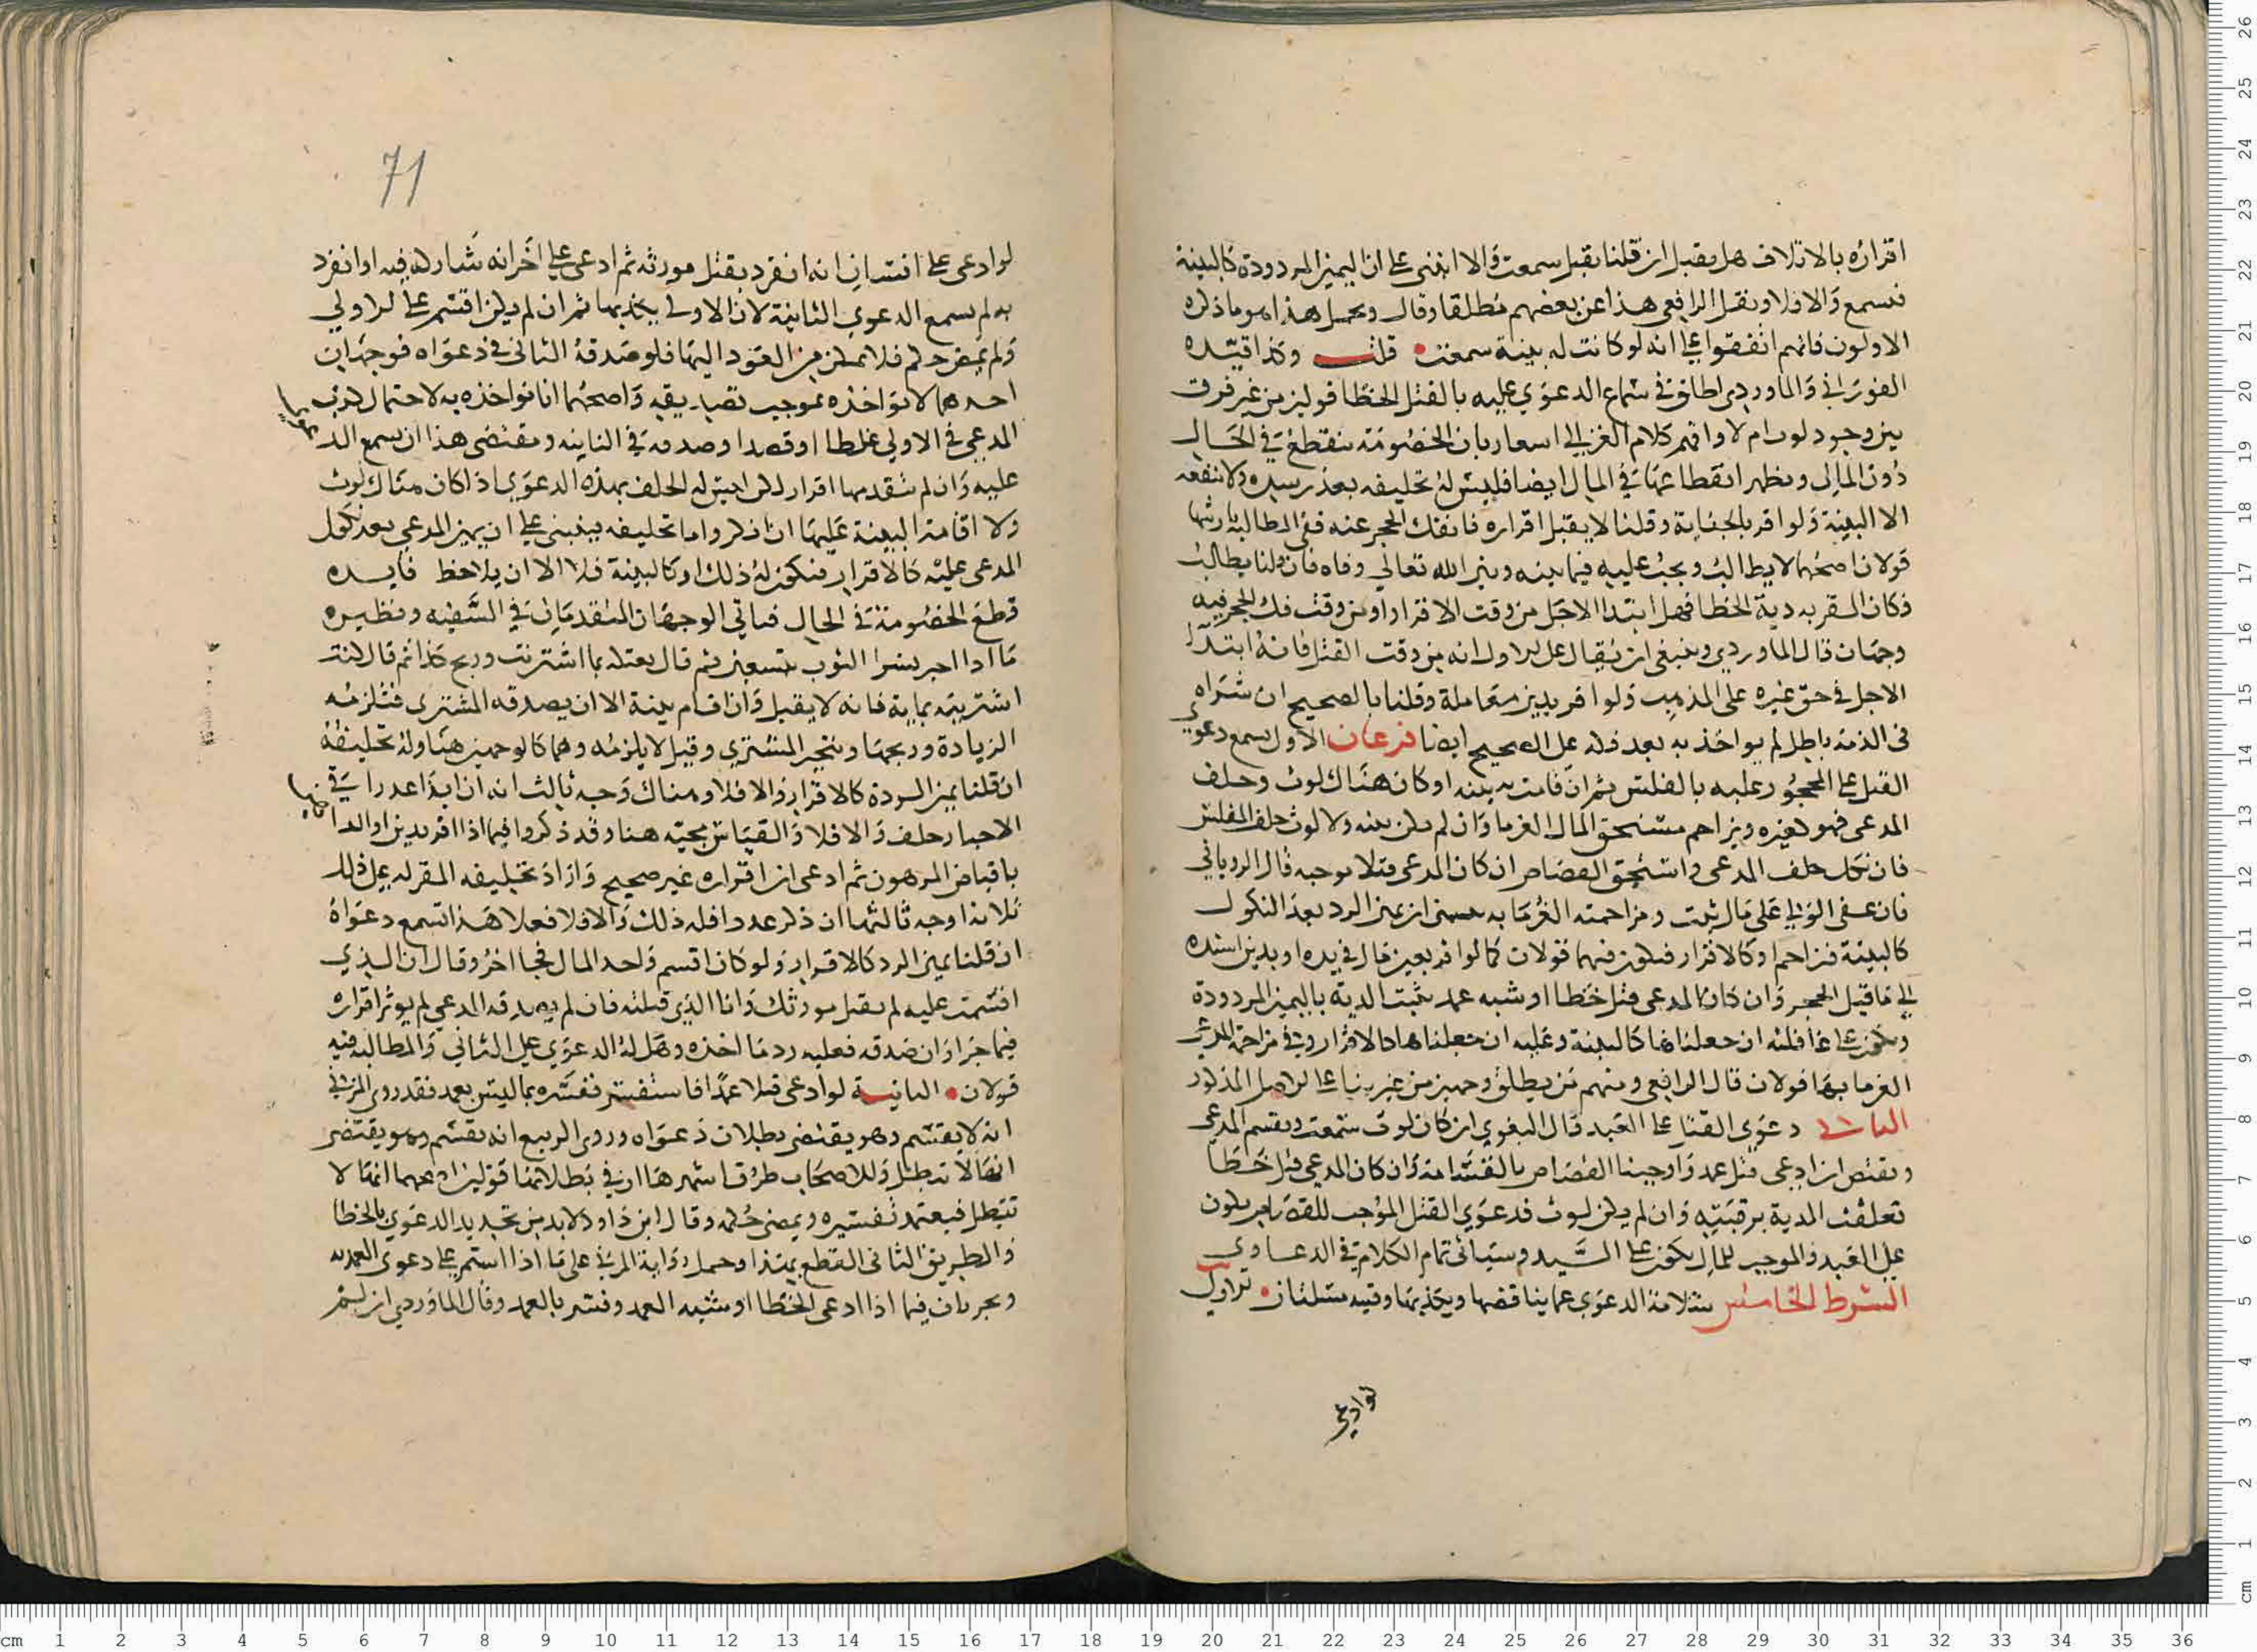 اقراره بالاتلاف هل يقبل ان قلنا يقبل سمعت والا انبنى على ان اليمين المردودة كالبينة
فتسمع والا فلا ونقل الرافعي هذا عن بعضهم مطلقا وقال ومحمل هذا هو ما ذكره
الاولون فانهم اتفقوا على انه لو كانت له بينة سمعت قلت وكذا قيده
الفوراني والماوردي اطلق في سماع الدعوي عليه بالقتل الخطا قولين من غير فرق
بين وجود لوث ام لا وافهم كلام الغزالي اسعار بان الخصومة تنقطع في الحال
دون المال ويظهر انقطاعها في المال ايضا فليس له تحليفه بعد رسده ولا تنفعه
الا البينة ولو اقر بالجناية وقلنا لا يقبل اقراره فانفك الحجر عنه ففي المطالبة بارشها
قولان اصحهما لا يطالب ويجب عليه فيما بينه وبين الله تعالي وفاه فان قلنا يطالب
فكان المقر به دية الخطا فهل ابتدا الاجل من وقت الاقرار او من وقت فك الحجر فيه
وجهان قال الماوردي وينبغي ان يقال على الاول انه من وقت القتل فانه ابتدا
الاجل في حق غيره على المذهب ولو اقر بدين معاملة وقلنا بالصحيح ان شراه
في الذمة باطل لم يواخذ به بعد فكه على الصحيح ايضا فرعان الاول تسمع دعوى
القتل على المحجور عليه بالفلس ثم ان قامت به بينه او كان هناك لوث وحلف
المدعى فهو كغيره ويزاحم مستحق المال الغرما وان لم يكن بينه ولا لوث حلف المفلس
فان نكل حلف المدعى واستحق القصاص ان كان المدعى قتلا يوجبه قال الروياني
فان عفى الولي على مال ثبت ومزاحمته الغرما به مبنى ان يمين الرد بعد النكول
كالبينة فزاحم او كالاقرار فيكون فيها قولان كما لو اقر بعين مال في يده او بدين اسنده
الى ما قبل الحجر وان كان المدعى قتل خطا او شبه عمد ثبت الدية باليمين المردودة
وتكون على عاقلته ان جعلناها كالبينة وعليه ان جعلناها كالاقرار وفي مزاحمة المدعي
الغرما بها قولان قال الرافعي ومنهم من يطلق وجهين من غير بنا على الاصل المذكور
الثاني دعوي القتل على العبد قال البغوي ان كان لوث سمعت ويقسم المدعي
ويقتص ان ادعى قتل عمد واوجبنا القصاص بالقسامة وان كان المدعي قتل خطا
تعلقت الدية برقبته وان لم يكن لوث فدعوي القتل الموجب للقصاص يكون
على العبد والموجب للمال يكون على السيد وسياتي تمام الكلام في الدعاوى
الشرط الخامس سلامة الدعوي عما يناقضها ويكذبها وفيه مسلتان الاولى
لو ادعى
71
لو ادعى على انسان انه انفرد بقتل مورثه ثم ادعى على اخر انه شاركه فيه او انفرد
به لم تسمع الدعوي الثانية لان الاولى يكذبها ثم ان لم يكن اقسم على الاولي
ولم يمض حكم فلا يمكن من العود اليها فلو صدقه الثاني في دعواه فوجهان
احدهما لا يواخذه بموجب تصديقه واصحهما انا نواخذه به لاحتمال كذب
المدعي في الاولي غلطا او قصدا وصدقه في الثانيه ومقتضى هذا ان تسمع الدعوى
عليه وان لم يتقدمها اقرار لكن ليس له الحلف بهذه الدعوي اذا كان هناك لوث
ولا اقامة البينة عليها ان ذكر واما تحليفه فينبني على ان يمين المدعي بعد نكول
المدعى عليه كالاقرار فيكون له ذلك او كالبينة فلا الا ان يلاحظ فايده
قطع الخصومة في الحال فياتي الوجهان المتقدمان في السفيه ونظيره
ما اذا اخبر بشرا الثوب بتسعين ثم قال بعتك بما اشتريت وربح كذا ثم قال كنت
اشتريته بماية فانه لا يقبل وان اقام بينة الا ان يصدقه المشترى فتلزمه
الزيادة وربحها ويتخير المشتري وقيل لا يلزمه وهما كالوجهين هنا وله تحليفه
ان قلنا يمين المردودة كالاقرار والا فلا وهناك وجه ثالث انه ان ابدا عدرا في
الاخبار حلف والا فلا والقياس مجيه هنا وقد ذكروا فيما اذا اقر بدين او الداهنها
باقباض المرهون ثم ادعى ان اقراره غير صحيح واراد تحليفه المقر له على ذلك
ثلاثة اوجه ثالثها ان ذكر عددا فله ذلك والا فلا فعلا هذا تسمع دعواه
ان قلنا يمين الرد كالاقرار ولو كان اقسم واحد المال فجا اخر وقال ان الذي
اقسمت عليه لم يقتل مورثك وانا الذي قتلته فان لم يصدقه المدعي لم يوثر اقراره
فيما جرا وان صدقه فعليه رد ما اخذه وهل له الدعوي على الثاني والمطالبه فيه
قولان الثانية لو ادعى قتلا عمدا فاستفسر ففسره بما ليس بعمد فقد روى المزني
انه لا يقسم وهو يقتضى بطلان دعواه وروى الربيع انه يقسم وهو يقتضى
انها لا تبطل وللاصحاب طرق اشهرها ان في بطلانها قولين اصحهما انها لا
تبطل فيعتمد تفسيره ويمضى حكمه وقال ابن داود لابد من تجديد الدعوي بالخطا
والطريق الثاني القطع بهذا وحمل رواية المزني على ما اذا استمر على دعوى العمديه
ويجريان فيما اذا ادعى الخطا او شبه العمد وفسر بالعمد وقال الماوردي ان لم